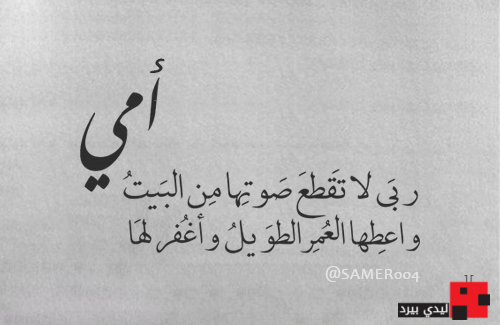 أمي
ربَي لا تقَطعَ صَوتِها مِن البَيتُ
واعطِها العُمِر الطوَيلُ وأغُفر لهَا
@SAMER004
ليدي بيرد